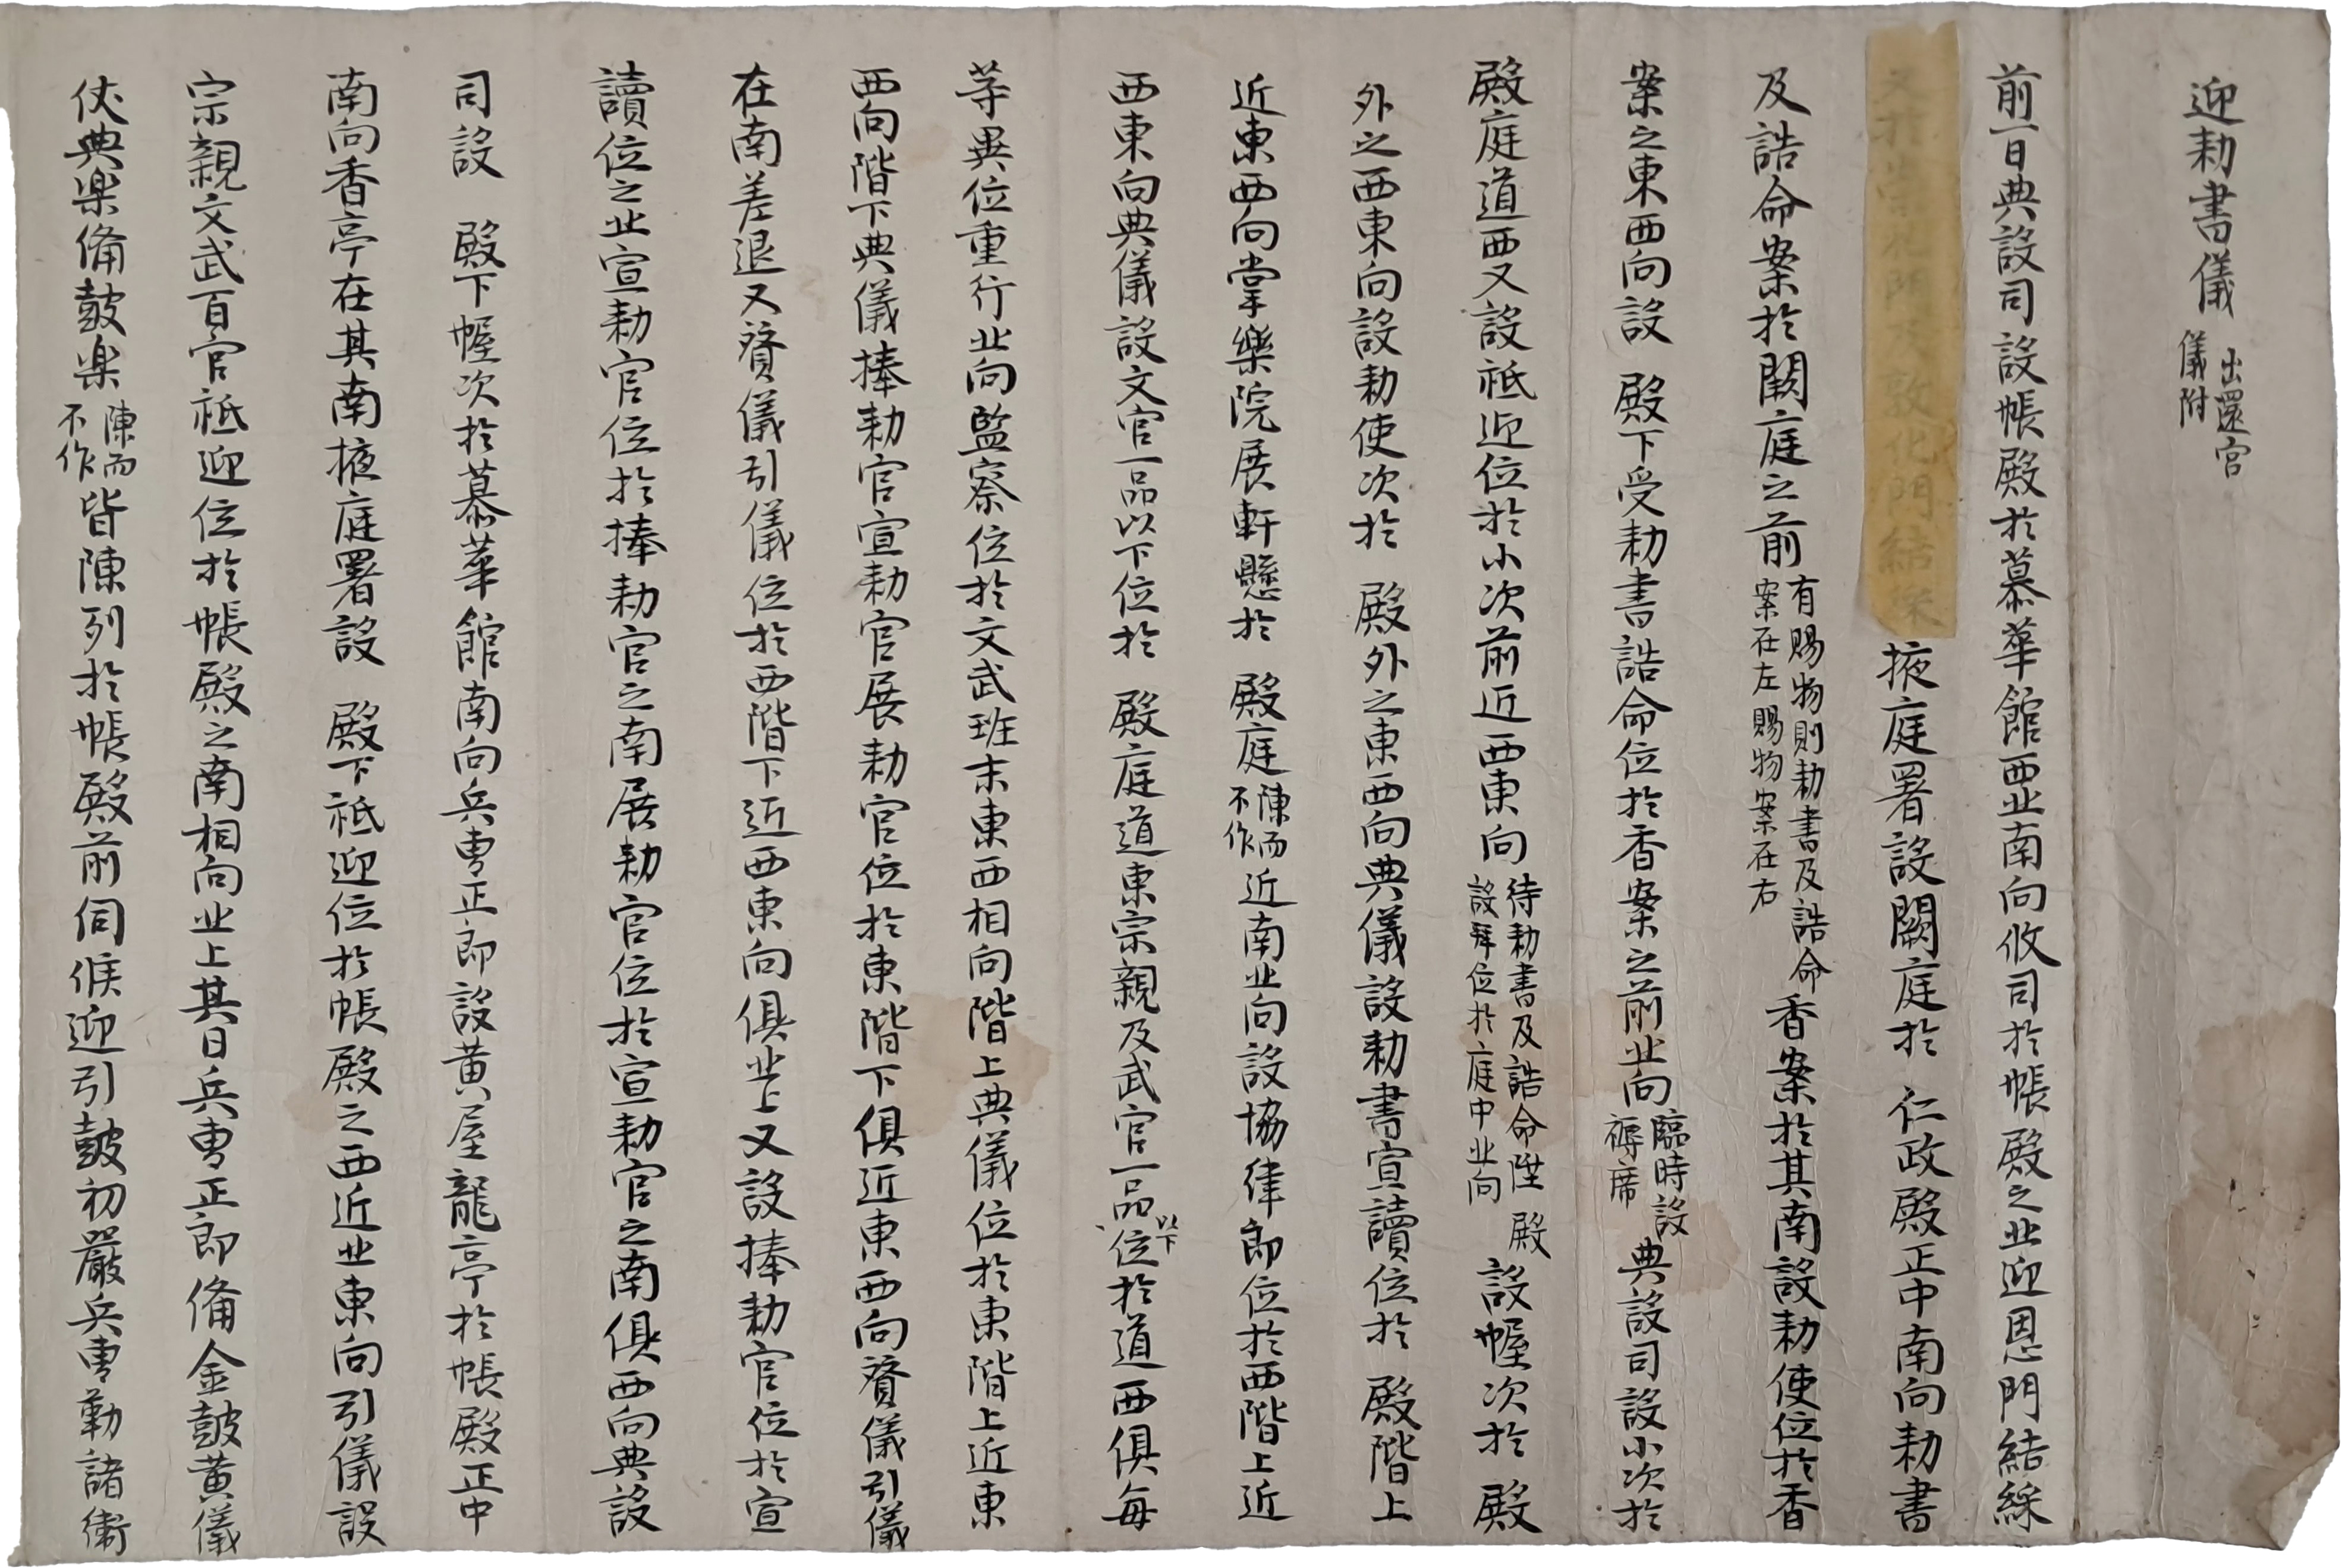 迎勅書儀 出還宮儀附
前一日典設司設帳殿於慕華館西北南向攸司於帳殿之北迎恩門結綵
又於崇礼門及敦化門結綵掖庭署設闕庭於 仁政殿正中南向勅書
及誥命案於闕庭之前 有賜物則勅書及誥命案在左賜物案在右 香案於其南設勅使位於香
案之東西向設 殿下受勅書誥命位於香案之前北向 臨時設褥席 典設司設小次於
殿庭道西又設祗迎位於小次前近西東向 待勅書及誥命陞 殿設拜位於庭中北向 設幄次於 殿
外之西東向設勅使次於 殿外之東西向典儀設勅書宣讀位於 殿階上
近東西向掌樂院展軒懸於 殿庭 陳而不作 近南北向設協律郎位於西階上近
西東向典儀設文官一品以下位於 殿庭道東宗親及武官一品以下位於道西俱每
等異位重行北向監察位於文武班末東西相向階上典儀位於東階上近東
西向階下典儀捧勅官宣勅官展勅官位於東階下俱近東西向賛儀引儀
在南差退又賛儀引儀位於西階下近西東向俱北上又設捧勅官位於宣
讀位之北宣勅官位於捧勅官之南展勅官位於宣勅官之南俱西向典設
司設 殿下幄次於慕華館南向兵曺正郎設黄屋龍亭於帳殿正中
南向香亭在其南掖庭署設 殿下祗迎位於帳殿之西近北東向引儀設
宗親文武百官祗迎位於帳殿之南相向北上其日兵曺正郎備金鼓黄儀
仗典楽備鼓楽 陳而不作 皆陳列於帳殿前伺候迎引鼓初嚴兵曺勒諸衛